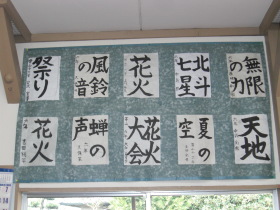 無限
の力
北斗
七星
花火
風鈴
の音
祭り
天地
夏の
空
花火
大会
蝉の
声
花火